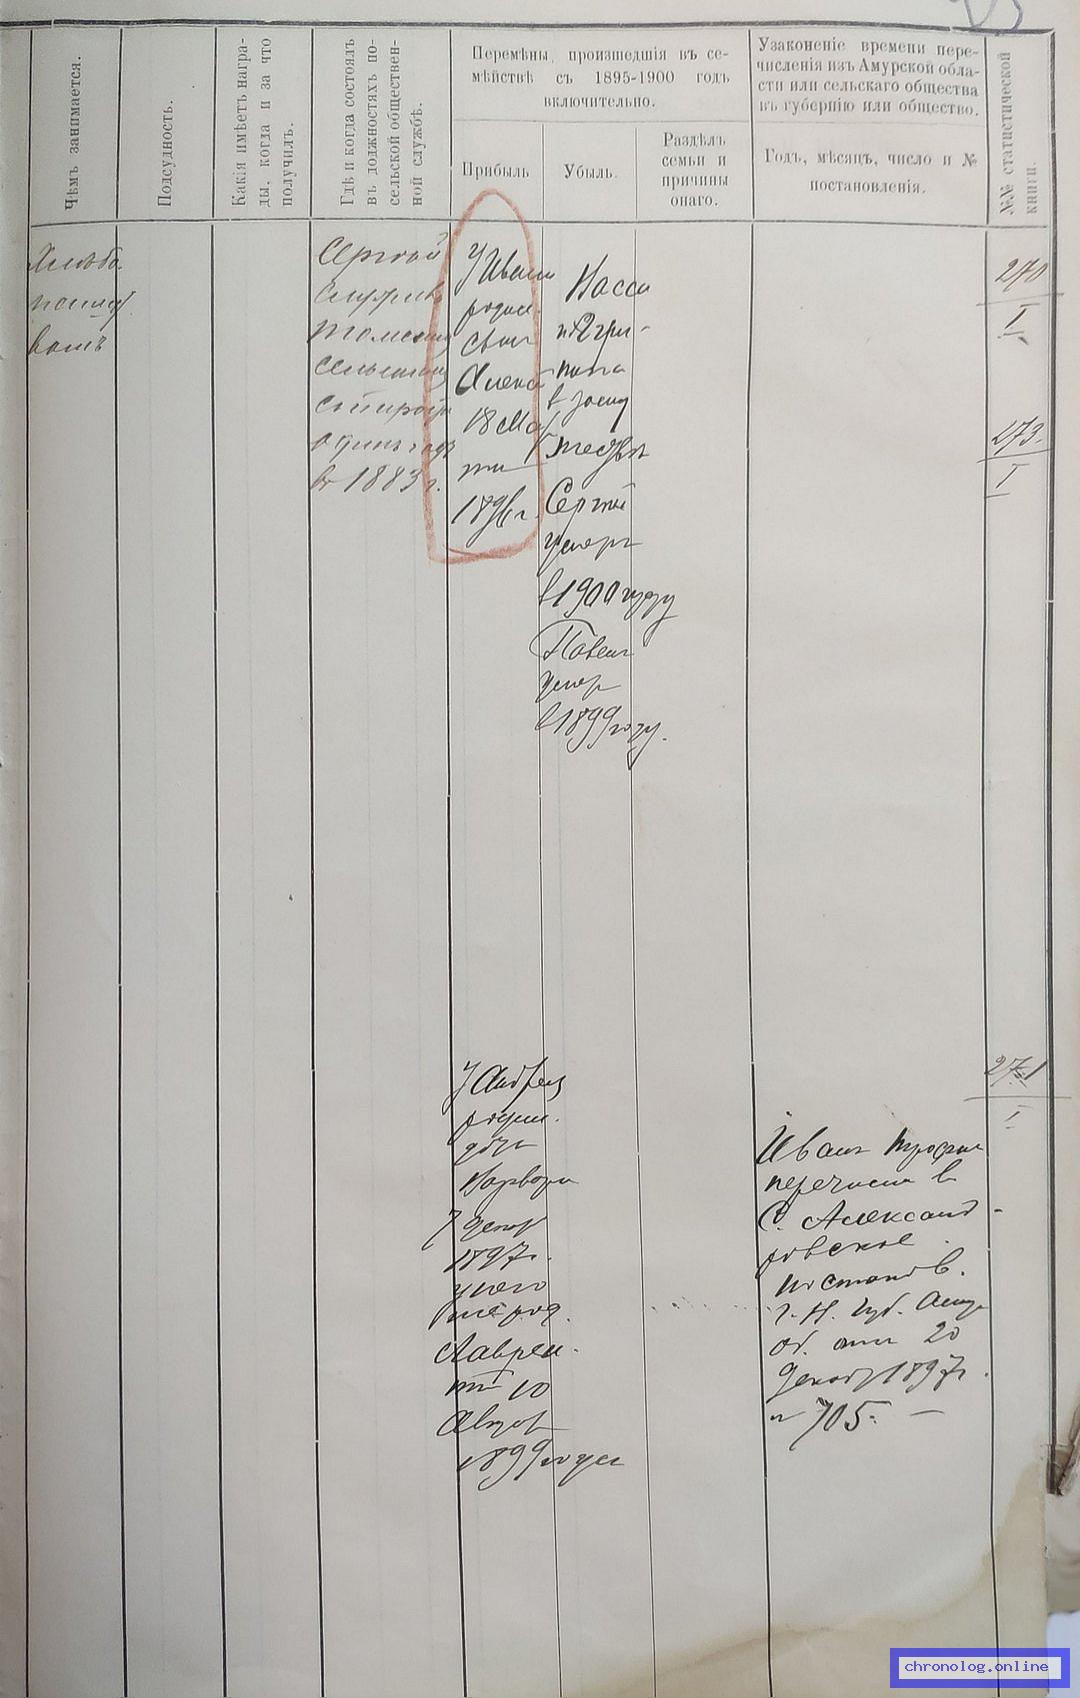 Чѣмъ занимается.
Подсудность.
Какія имѣетъ награ-
ды, когда и за что
получилъ.
Гдѣ и когда состоялъ
въ должностяхъ по-
сельской обществен-
ной службѣ.
Перемѣны, происшедшія въ се-
мѣйствѣ съ 1895-1900 годъ
включительно.
Прибыль
Убыль.
Раздѣлъ
семьи и
причины
онаго.
Узаконеніе времени пере-
численія изъ Амурской обла-
сти или сельскаго общества
въ губернію или общество.
Годъ, мѣсяцъ, число и №
постановленія.
№№ статистической
книги.
Хлѣбо
Сергѣй
сельскимъ
в 1883 г.
У Ивана
родил.
сынъ
Алекс
18 Мар
та
1896 г.
в
Сергѣй
умеръ
в 1900 году
Павелъ
умер
в 1899 году.
270
I
273.
I
У Андрея
родил.
дочь
Варвара
7 декабр
1897 г.
у него
же род.
Лаврен-
тій 10
Август
1899 года
Иванъ Трофим
перечислен в
с. Александ-
ровское
постанов.
г. Н. Губ. Амур
об. от 20
Декаб 1897 г.
№ 705. —
271
I
chronolog.online